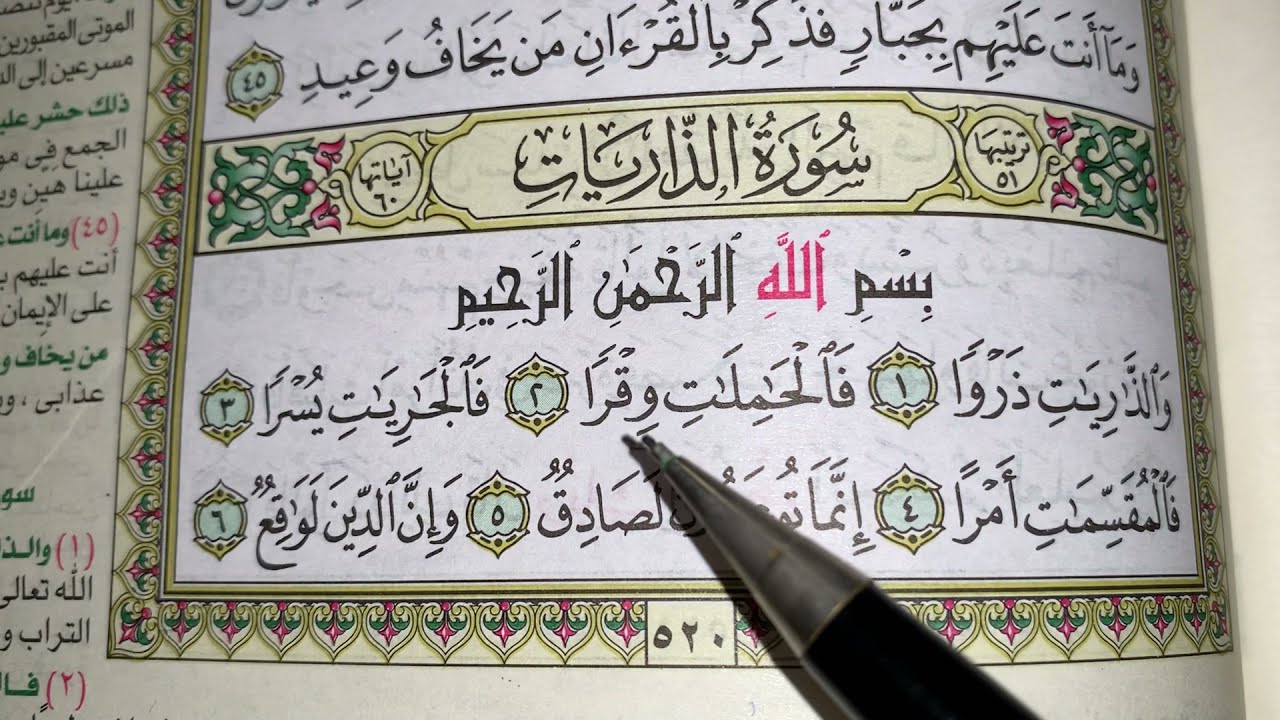 وَمَآ أَنتَ عَلَيْهِم بِجَبَّارٍ فَذَكِّرْ بِالْقُرْءَانِ مَن يَخَافُ وَعِيدِ ٤٥
ترتيبها ٥١ سُورَةُ الذَّارِيَاتِ آياتها ٦٠
بِسْمِ ٱللَّهِ ٱلرَّحْمَٰنِ ٱلرَّحِيمِ
وَٱلذَّٰرِيَٰتِ ذَرْوًا ١ فَٱلْحَٰمِلَٰتِ وِقْرًا ٢ فَٱلْجَٰرِيَٰتِ يُسْرًا ٣
فَٱلْمُقَسِّمَٰتِ أَمْرًا ٤ إِنَّمَا لَصَادِقٌ ٥ وَإِنَّ ٱلدِّينَ لَوَٰقِعٌ ٦
٥٢٠
الموتى المقبورين
مسرعين إلى
ذلك حشر
الجمع في
علينا هين
(٤٥) وما أنت
أنت عليهم
على الإيمان
من يخاف
عذابي ،
(١)
الله تعالى
التراب
(٢)